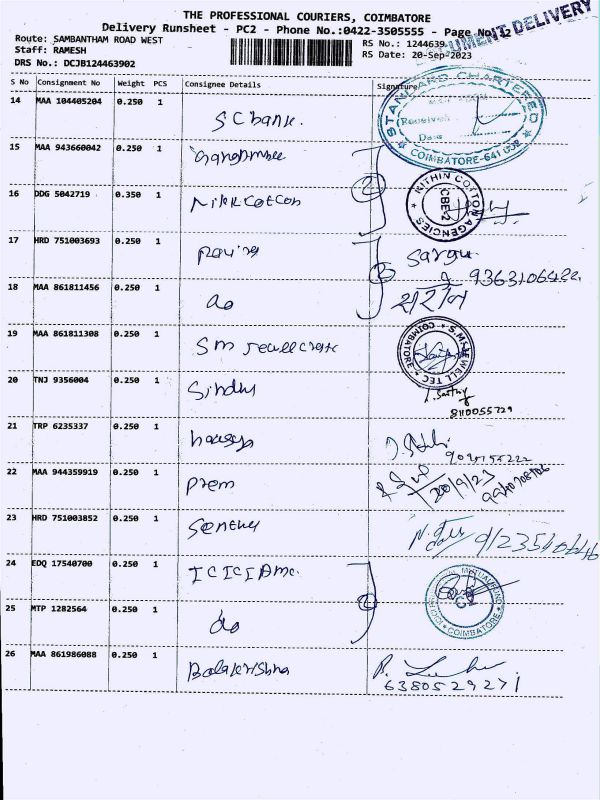 THE PROFESSIONAL COURIERS, COIMBATORE
Delivery Runsheet - PC2 - Phone No.:0422-3505555 - Page No. 2
DOCUMENT DELIVERY
Route: SAMBANTHAM ROAD WEST
RS No.: 1244639
Staff: RAMESH
RS Date: 20-Sep-2023
DRS No.: DCJB124463902
S No Consignment No Weight PCS Consignee Details Signature
14 MAA 104405204 0.250 1 SC bank.
STANDARD CHARTERED
Received
Date
COIMBATORE-641 018
15 MAA 943660042 0.250 1
16 DDG 5042719 0.350 1 Nithi Cotton
NITHIN COTTON AGENCIES
CBE-2
17 HRD 751003693 0.250 1
9363106422
18 MAA 861811456 0.250 1 do
19 MAA 861811308 0.250 1 SM
S.M. JEWELL TEC
COIMBATORE
20 TNJ 9356004 0.250 1 Sindhu
8110055729
21 TRP 6235337 0.250 1
22 MAA 944359919 0.250 1 Prem
20/9/23
23 HRD 751003852 0.250 1 Senthil
24 EDQ 17540700 0.250 1 ICICI
COIMBATORE
25 MTP 1282564 0.250 1 do
26 MAA 861986088 0.250 1 Balakrishna
6380529271